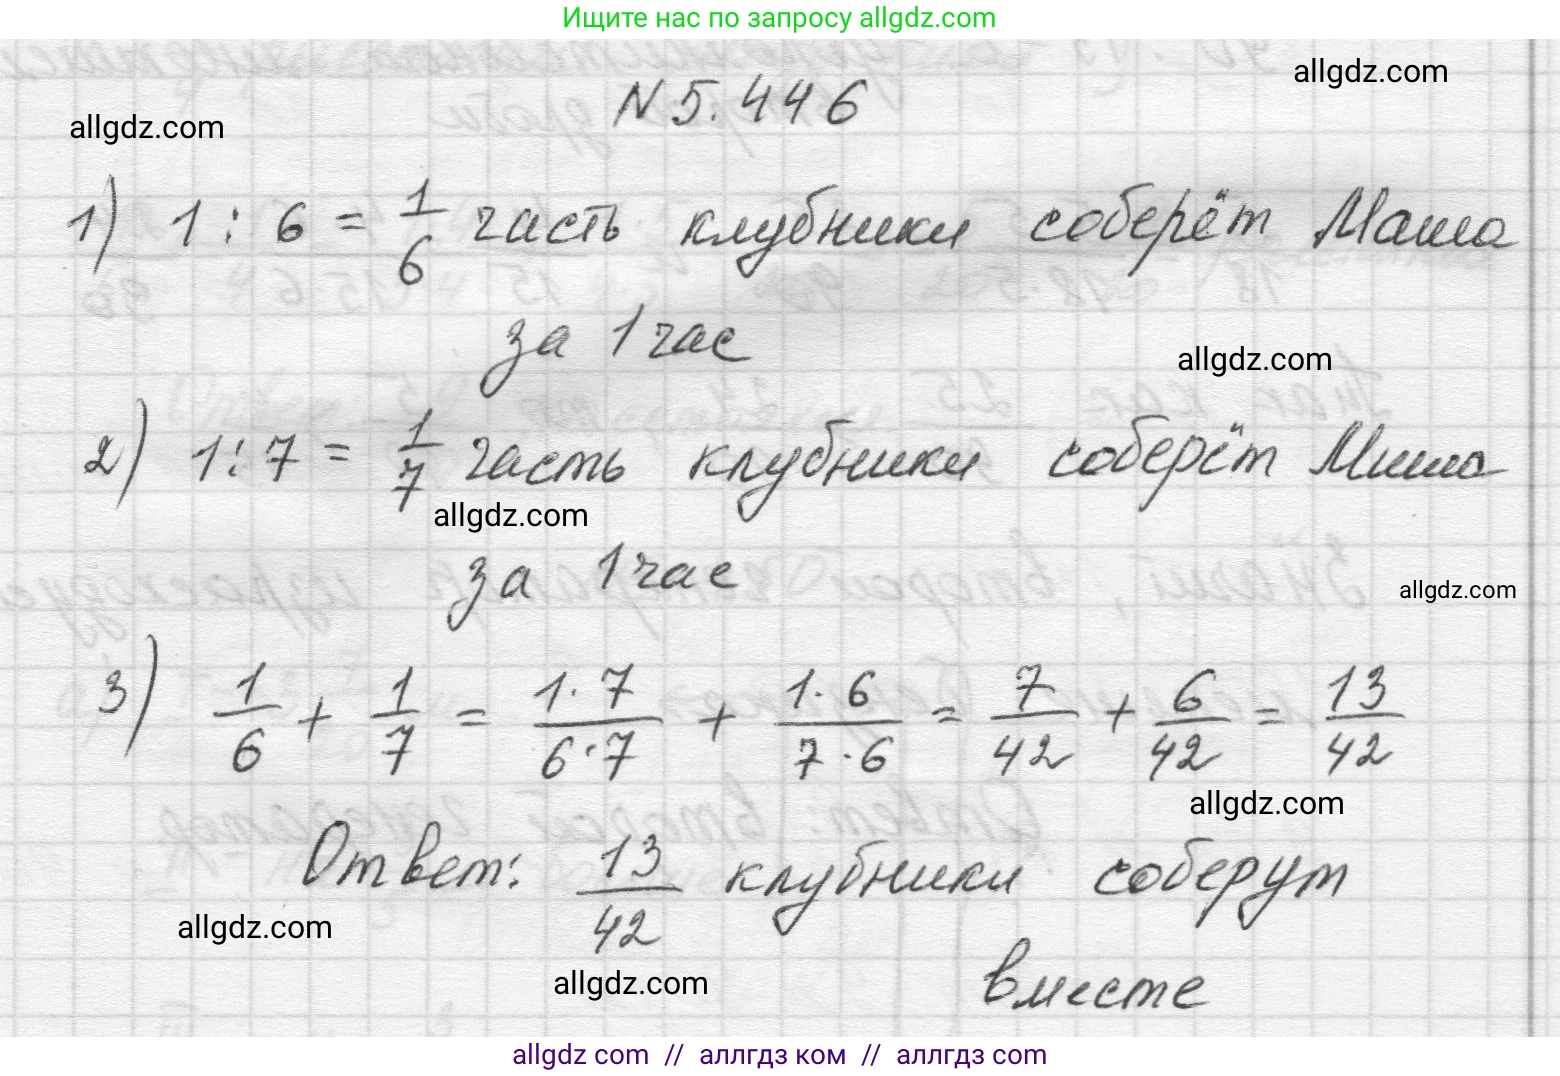 Ищите нас по запросу allgdz.com
allgdz.com
allgdz.com
N 5.446
1) 1 : 6 = 1/6 часть клубники соберёт Маша
за 1 час
allgdz.com
2) 1 : 7 = 1/7 часть клубники соберёт Миша
allgdz.com
за 1 час
allgdz.com
3) 1/6 + 1/7 = 1·7/6·7 + 1·6/7·6 = 7/42 + 6/42 = 13/42
allgdz.com
Ответ: 13/42 клубники соберут
allgdz.com
allgdz.com
вместе
allgdz com // аллгдз ком // аллгдз com